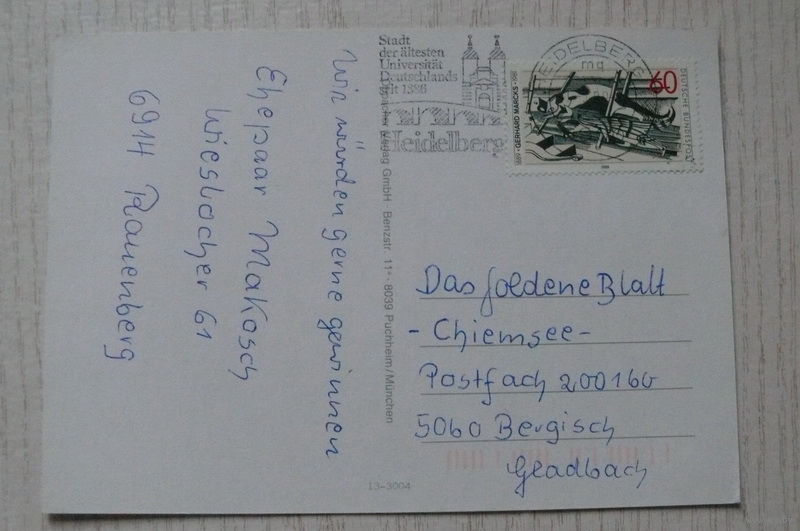 Wir würden gerne gewinnen
Ehepaar Makosch
Wieslocher 61
6914 Rauenberg
Stadt
der ältesten
Universität
Deutschlands
seit 1386
Heidelberg
HEIDELBERG
mq
60
DEUTSCHE BUNDESPOST
GERHARD MARCKS
Verlag GmbH · Benzstr. 11 · 8039 Puchheim/München
Das goldene Blatt
- Chiemsee -
Postfach 200160
5060 Bergisch
Gladbach
13-3004